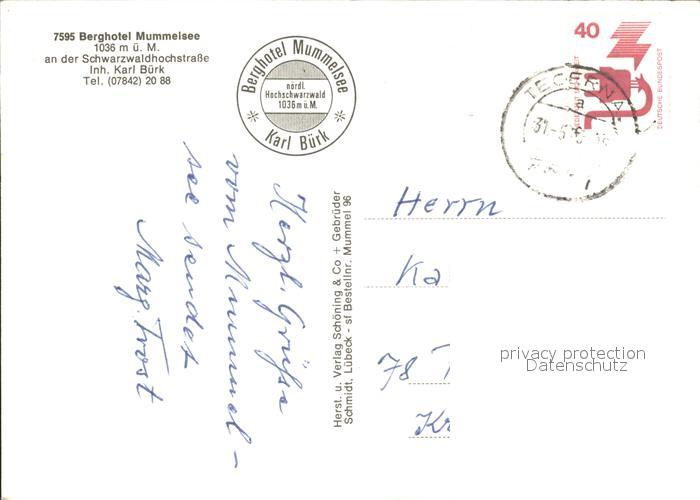 7595 Berghotel Mummelsee
1036 m ü. M.
an der Schwarzwaldhochstraße
Inh. Karl Bürk
Tel. (07842) 20 88
Berghotel Mummelsee
nördl.
Hochschwarzwald
1036 m ü. M.
Karl Bürk
40
DEUTSCHE BUNDESPOST
Herzl. Grüße
vom Mummel-
see sendet
Marg. Trost
Herst. u. Verlag Schöning & Co + Gebrüder
Schmidt, Lübeck - sf Bestellnr. Mummel 96
Herrn
Ka
78 T
Kr
privacy protection
Datenschutz